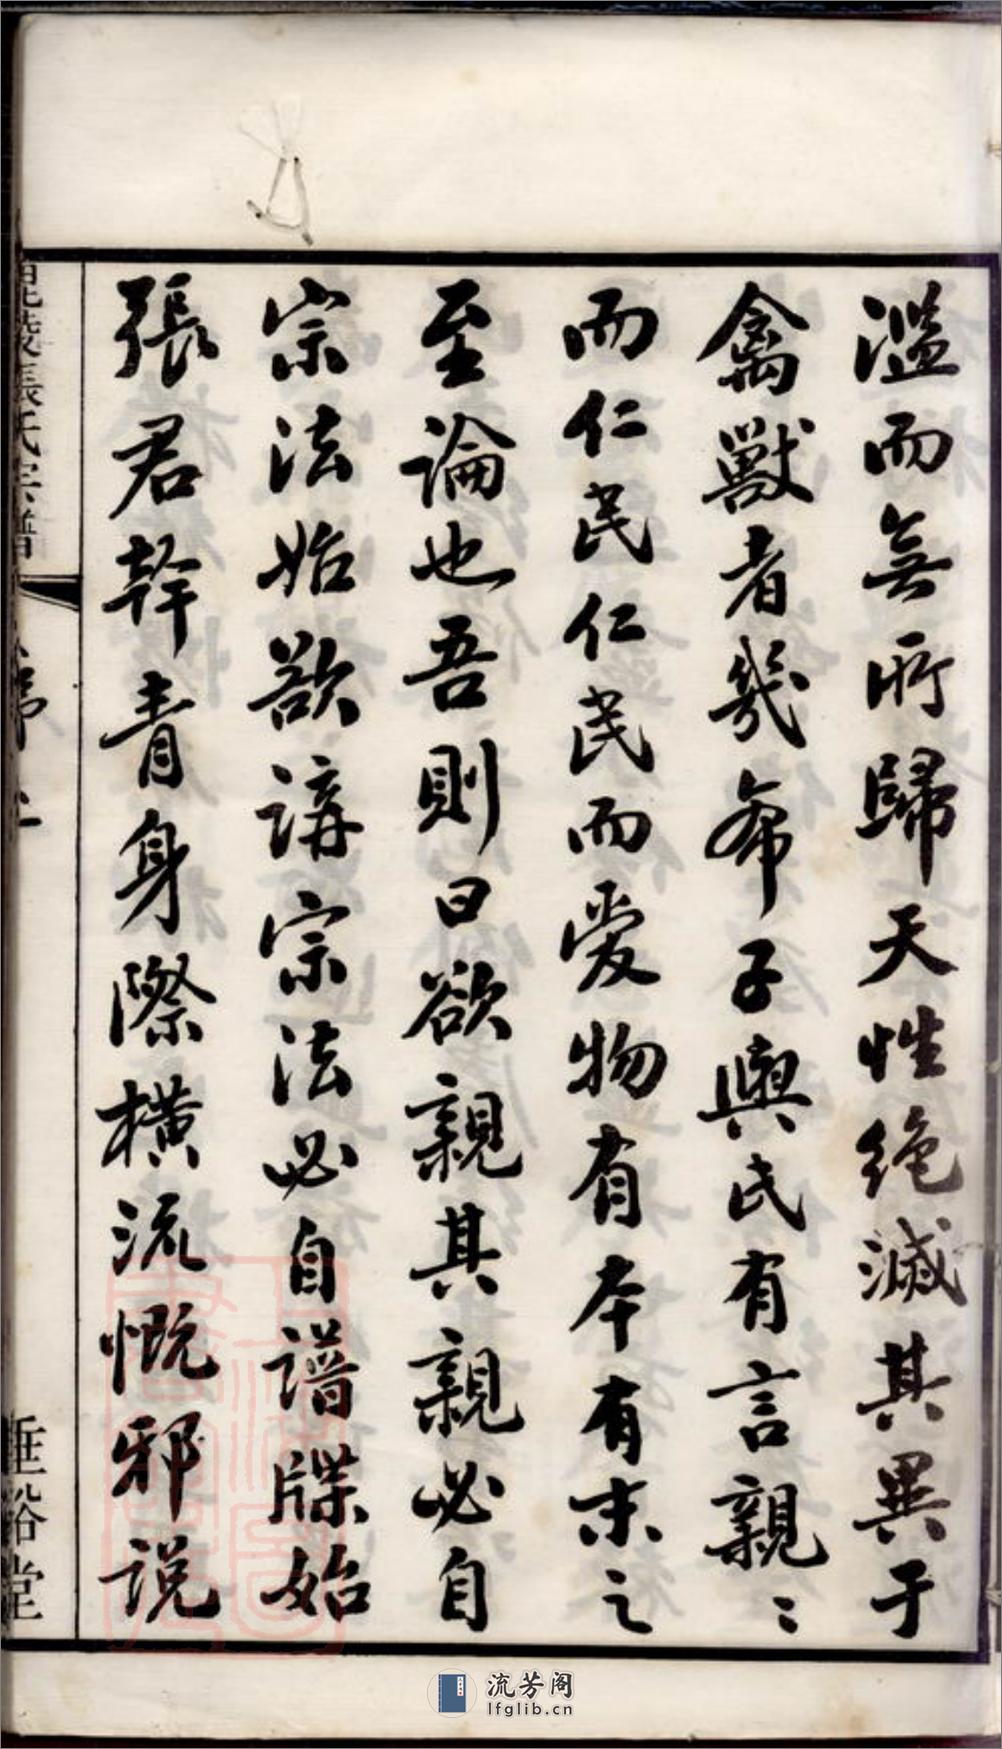 濫而無所歸天性絶滅其異于
禽獸者幾希子輿氏有言親〻
而仁民仁民而愛物有本有末之
至論也吾則曰欲親其親必自
宗法始欲講宗法必自譜牒始
張君幹青身際橫流慨邪說
毘陵張氏宗譜
序
垂裕堂
流芳阁
lfglib.cn